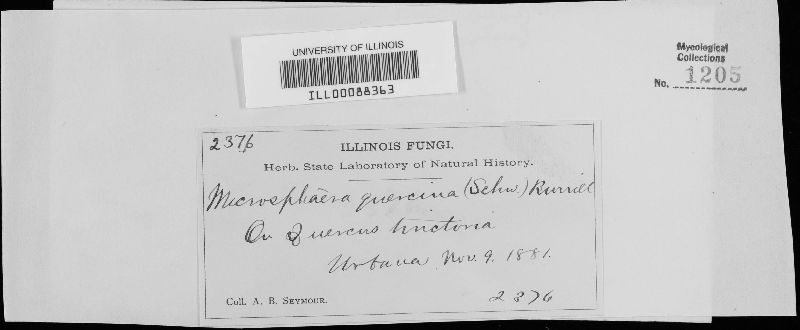 UNIVERSITY OF ILLINOIS
ILL00088363
Mycological
Collections
No. 1205
2376
ILLINOIS FUNGI.
Herb. State Laboratory of Natural History.
Microsphaera quercina (Schw.) Burrill
On Quercus tinctoria
Urbana Nov. 9. 1881.
Coll. A. B. Seymour.
2376